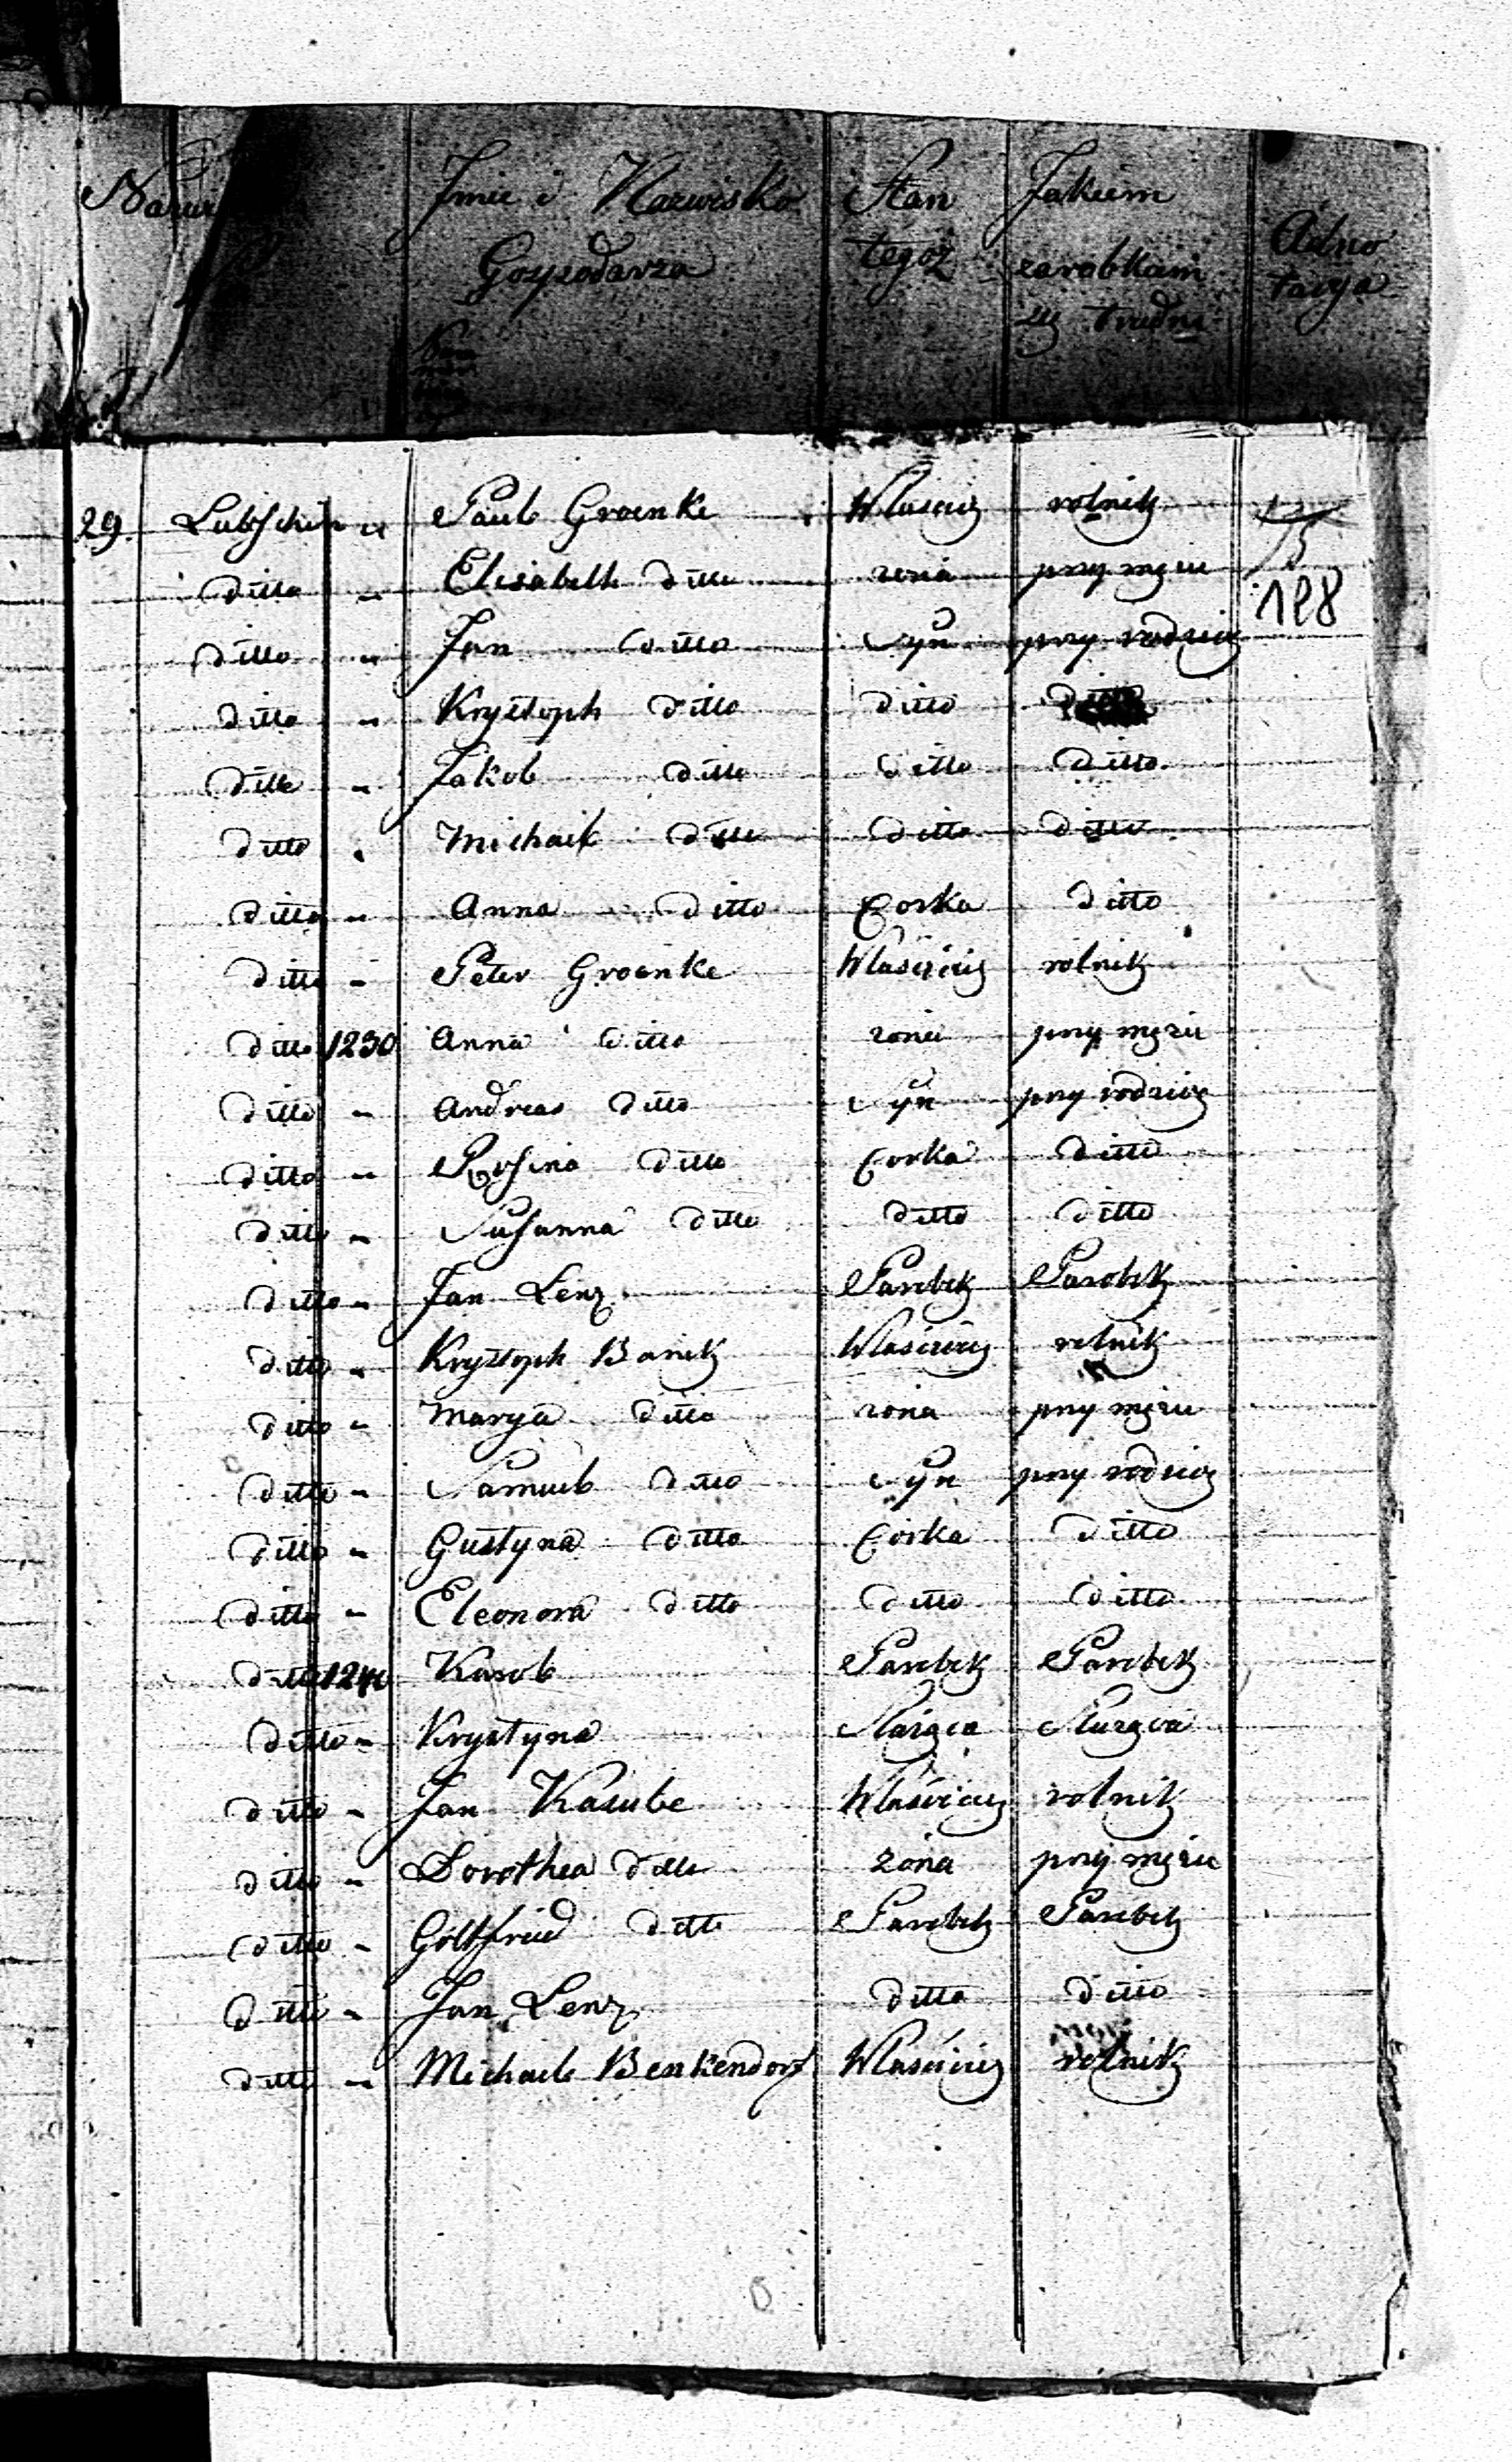 Imie i Nazwisko Gospodarza Stan tegoż Jakiem zarobkiem się trudni Adnotacya
128
29. Lubschin " Paul Groenke Włascicz rolnik
ditto " Elisabeth ditto zona przy mężu
ditto " Jan ditto Syn przy rodzicz
ditto " Krystoph ditto ditto
ditto " Jakob ditto ditto ditto
ditto " Michael ditto ditto ditto
ditto " Anna ditto Corka ditto
ditto " Peter Groenke Właścicz rolnik
ditto 1230 Anna ditto zona przy mężu
ditto " Andreas ditto Syn przy rodzicz
ditto " Rosina ditto Corka ditto
ditto " Susanna ditto ditto ditto
ditto " Jan Lenz Parobek Parobek
ditto " Krystoph Banek Właścicz rolnik
ditto " Marya ditto zona przy mężu
ditto " Samuel ditto Syn przy rodzicz
ditto " Gustyna ditto Corka ditto
ditto " Eleonora ditto ditto ditto
ditto 1240 Karob Parobek Parobek
ditto " Krystyna Służąca Służąca
ditto " Jan Kasube Właścicz rolnik
ditto " Dorothea ditto żona przy mężu
ditto " Gottfried ditto Parobek Parobek
ditto " Jan Lenz ditto ditto
ditto " Michael Benkendorf Właścicz rolnik